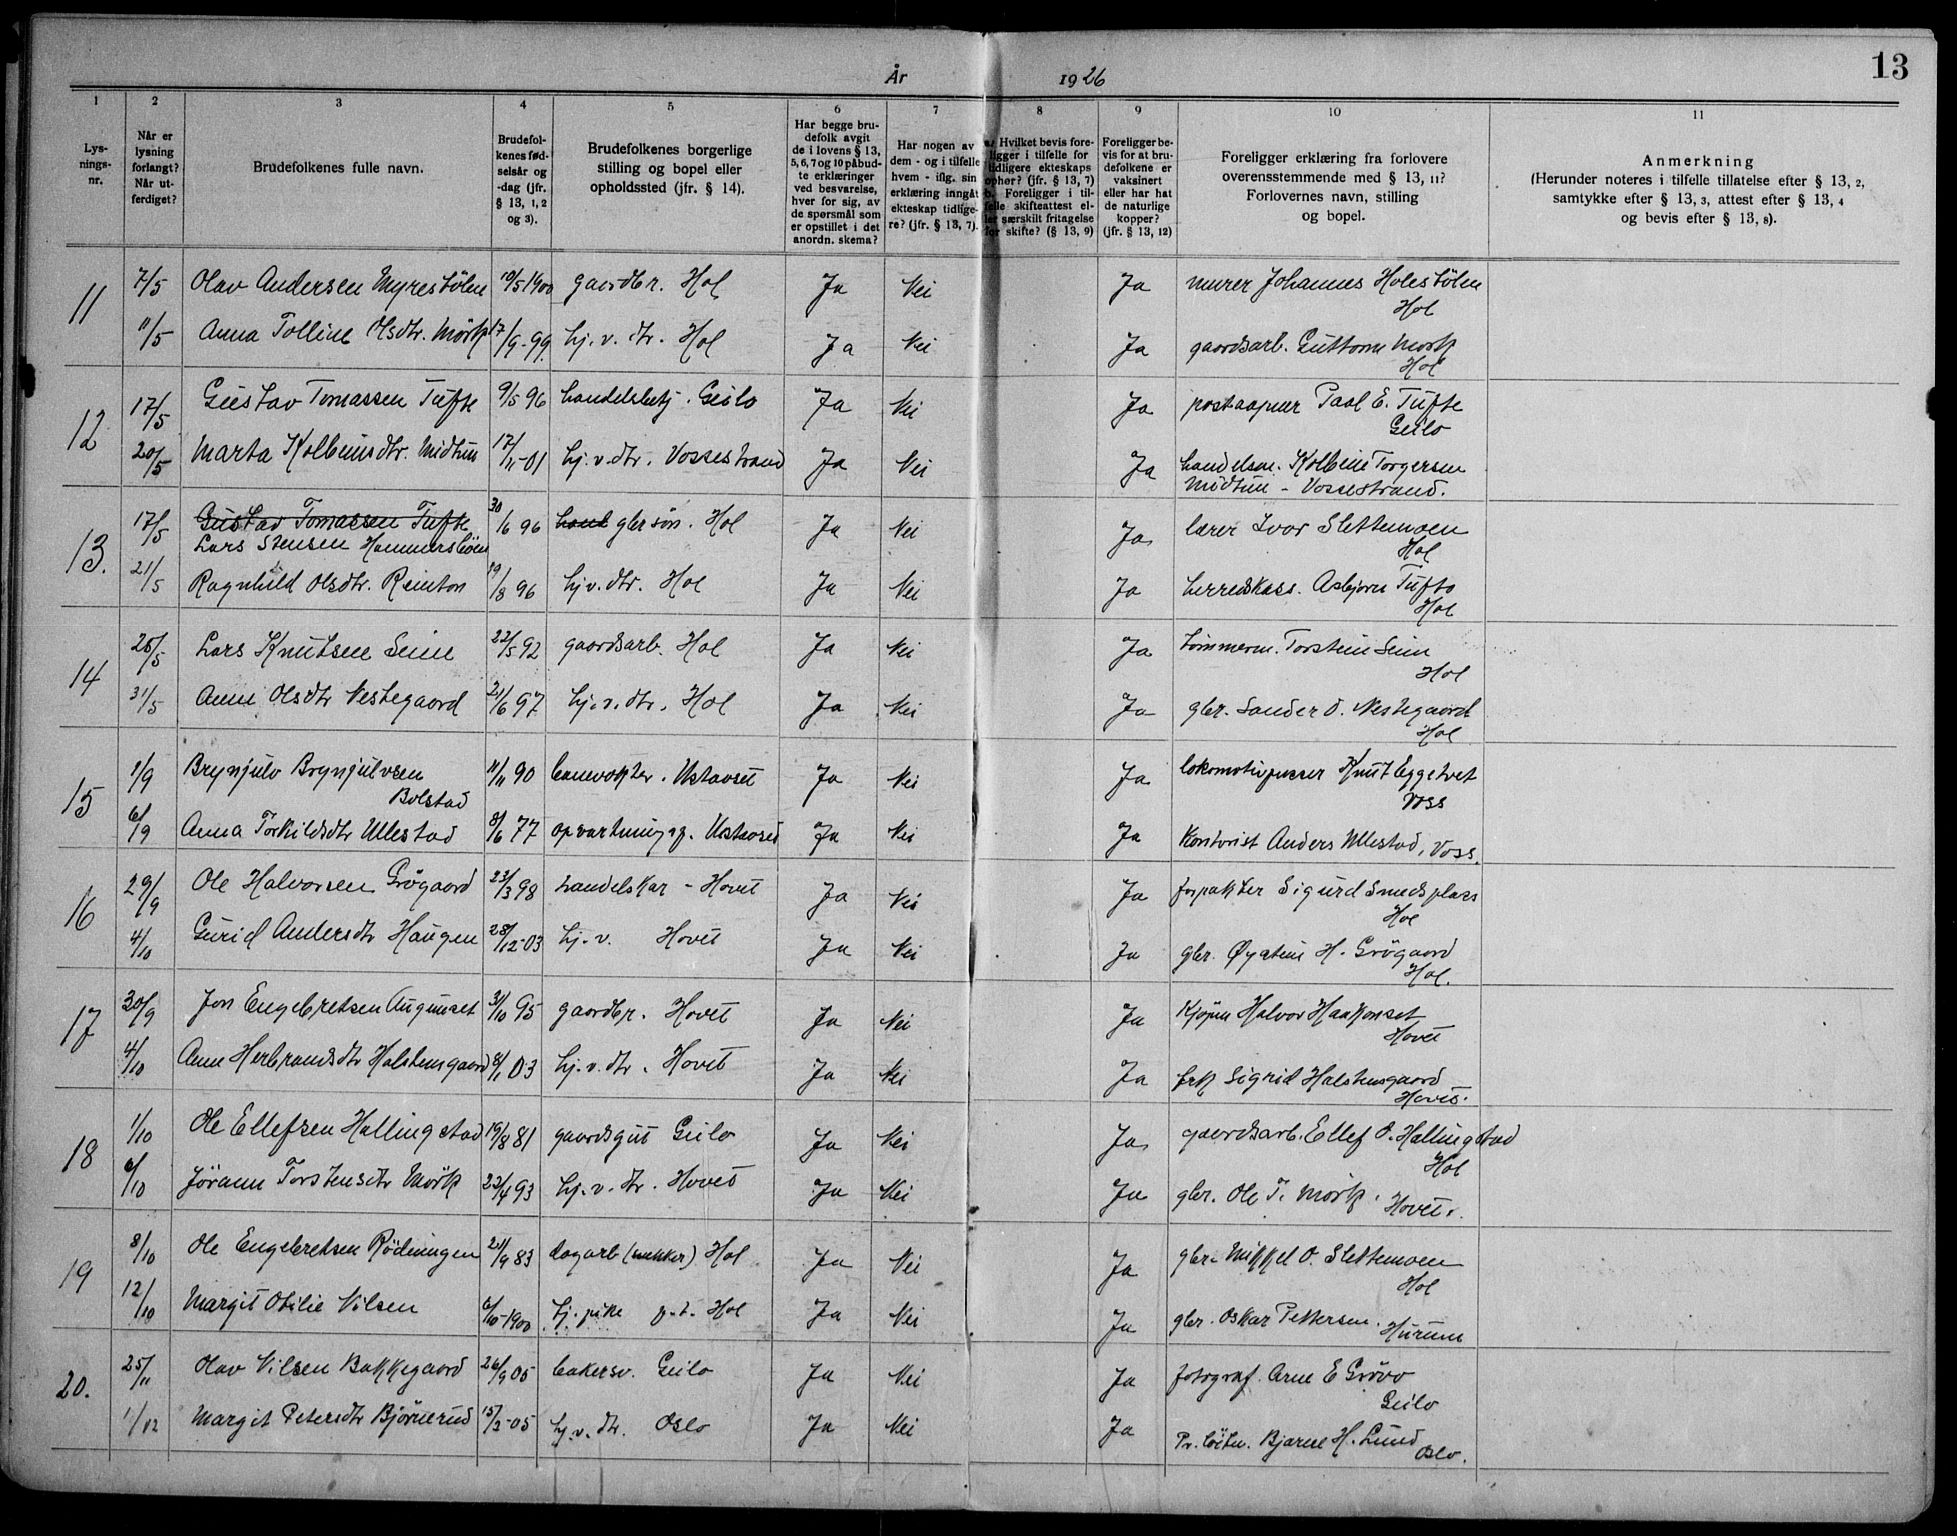 13
År 1926
1 2 3 4 5 6 7 8 9 10 11
Lys-
nings-
nr.
Når er
lysning
forlangt?
Når ut-
ferdiget?
Brudefolkenes fulle navn.
Brudefol-
kenes fød-
selsår og
-dag (jfr.
§ 13, 1, 2
og 3).
Brudefolkenes borgerlige
stilling og bopel eller
opholdssted (jfr. § 14).
Har begge bru-
defolk avgit
de i lovens § 13,
5, 6, 7 og 10 påbud-
te erklæringer
ved besvarelse,
hver for sig, av
de spørsmål som
er opstillet i det
anordn. skema?
Har nogen av
dem - og i tilfelle
hvem - iflg. sin
erklæring inngåt
ekteskap tidlige-
re? (jfr. § 13, 7).
a. Hvilket bevis fore-
ligger i tilfelle for
tidligere ekteskaps
ophør? (jfr. § 13, 7)
b. Foreligger i til-
felle skifteattest el-
ler særskilt fritagelse
for skifte? (§ 13, 9)
Foreligger be-
vis for at bru-
defolkene er
vaksinert
eller har hat
de naturlige
kopper?
(jfr. § 13, 12)
Foreligger erklæring fra forlovere
overensstemmende med § 13, 11?
Forlovernes navn, stilling
og bopel.
Anmerkning
(Herunder noteres i tilfelle tillatelse efter § 13, 2,
samtykke efter § 13, 3, attest efter § 13, 4
og bevis efter § 13, 8).
11 7/5 Olav Andersen Myrestölen 10/5 1900 gaardbr. Hol Ja Nei Ja murer Johannes Holestölen
Hol
11/5 Anna Tolline Olsdtr. Mörk 17/9-99 hj. v. dtr. Hol Ja Nei Ja gaardsarb. Guttorm Mörk
Hol
12 17/5 Gustav Tomassen Tufte 9/5 96 handelsbetj. Geilo Ja Nei Ja postaapner Paal E. Tufte
Geilo
20/5 Marta Kolbeinsdtr. Midtun 17/11-01 hj. v. dtr. Vossestrand Ja Nei Ja handelsm. Kolbein Torgersen
Midtun - Vossestrand.
13. 17/5 Gustav Tomassen Tufte 30/6 96 hand gbr sön. Hol Ja Nei Ja lærer Ivar Slettemoen
Lars Stensen Hammersböen Hol
21/5 Ragnhild Olsdtr. Reinton 19/8 96 hj. v. dtr. Hol Ja Nei Ja herredskass. Asbjørn Tufto
Hol
14 25/5 Lars Knutsen Seim 22/5 92 gaardsarb. Hol Ja Nei Ja tömmerm. Torstein Seim
Hol
31/5 Anne Olsdtr Nestegaard 21/6 97 hj. v. dtr. Hol Ja Nei Ja gbr. Sander O. Nestegaard
Hol
15 1/9 Brynjulv Brynjulvsen 11/11 90 banevokter. Ustaoset Ja Nei Ja lokomotivpusser Knut Eggetvet
Bolstad Voss
6/9 Anna Torkildsdtr Ullestad 8/6 77 opvartningsp. Ustaoset Ja Nei Ja Kontorist Anders Ullestad, Voss.
16 29/9 Ole Halvorsen Grögaard 23/3 98 handelskar - Hovet Ja Nei Ja forpakter Sigurd Smedsplass
Hol
4/10 Gurid Andersdtr Haugen 28/12-03 hj. v. Hovet Ja Nei Ja gbr. Øystein H. Grögaard
Hol.
17 30/9 Jon Engebretsen Augunset 31/10 95 gaardbr. Hovet Ja Nei Ja Kjöpm Halvor Haakonset
Hovet
4/10 Anne Herbrandsdtr Halstensgaard 8/1 03 hj. v. dtr. Hovet Ja Nei Ja frk Sigrid Halstensgaard
Hovet.
18 1/10 Ole Ellefsen Hallingstad 19/8 81 gaardsgut Geilo Ja Nei Ja gaardsarb. Ellef O. Hallingstad
Hol
6/10 Jörann Torstensdtr Mörk 22/4 93 hj. v. dtr. Hovet Ja Nei Ja gbr. Ole T. Mörk. Hovet.
19 8/10 Ole Engebretsen Rödningen 21/9 83 dagarb (snekker) Hol Ja Nei Ja gbr. Mikkel O. Slettemoen
Hol
12/10 Margit Otilie Nilsen 6/10-1900 hj. pike p. t. Hol Ja Nei Ja gbr. Oskar Pettersen. Hurum
20. 25/11 Olav Nilsen Bakkegaard 26/9 05 bakersv. Geilo Ja Nei Ja fotograf. Arne E Grövo
Geilo
1/12 Margit Petersdtr Bjørnerud 15/3-05 hj. v. dtr. Oslo Ja Nei Ja Pr. löitn. Bjarne H. Lund
Oslo.